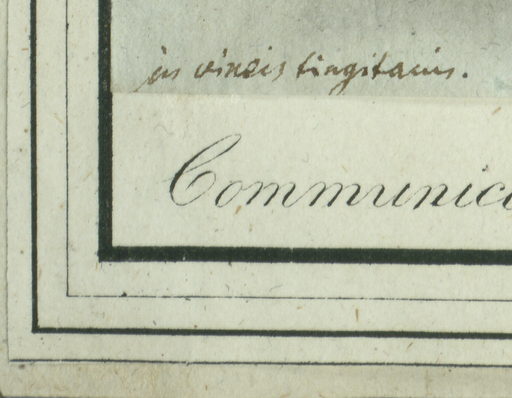 in vineis tingitanis.
Communica